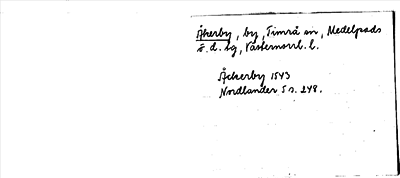 Åkerby, by, Timrå sn, Medelpads
ö. d. sg, Västernorrl. l.
Åckerby 1543
Nordlander S s. 248.